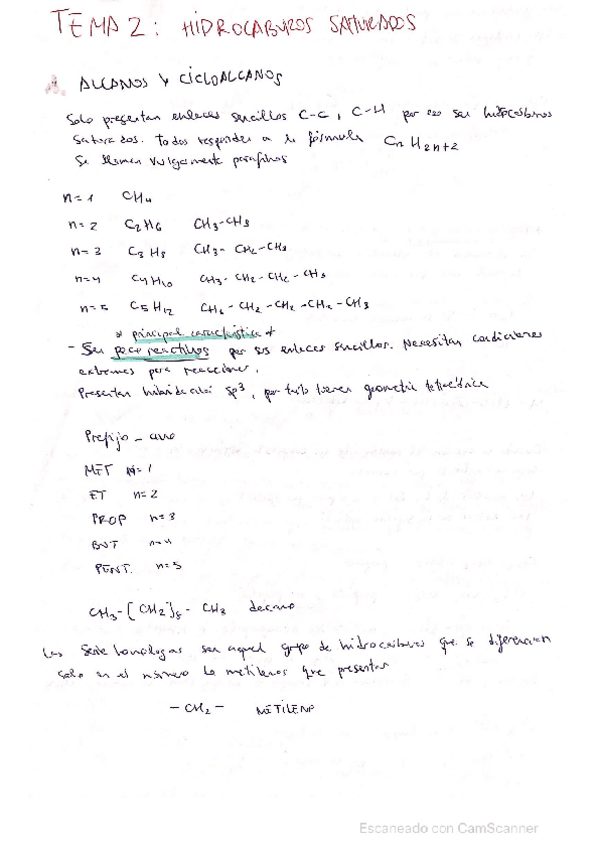 TEMA 2: HIDROCABUROS SATURADOS
A. ALCANOS Y CICLOALCANOS
Solo presentan enlaces sencillos C-C, C-H por eso son hidrocarburos
saturados. Todos responden a la fórmula CnH2n+2
Se llaman vulgarmente parafinas
n=1 CH4
n=2 C2H6 CH3-CH3
n=3 C3H8 CH3-CH2-CH3
n=4 C4H10 CH3-CH2-CH2-CH3
n=5 C5H12 CH3-CH2-CH2-CH2-CH3
* principal característica *
- Son poco reactivos por sus enlaces sencillos. Necesitan condiciones
extremas para reaccionar.
Presentan hibridación sp3, por tanto tienen geometría tetraédrica
Prefijo - ano
MET n=1
ET n=2
PROP n=3
BUT n=4
PENT. n=5
CH3-[CH2]8-CH3 decano
Las serie homólogas son aquel grupo de hidrocarburos que se diferencian
solo en el número de metilenos que presentan
-CH2- METILENO
Escaneado con CamScanner